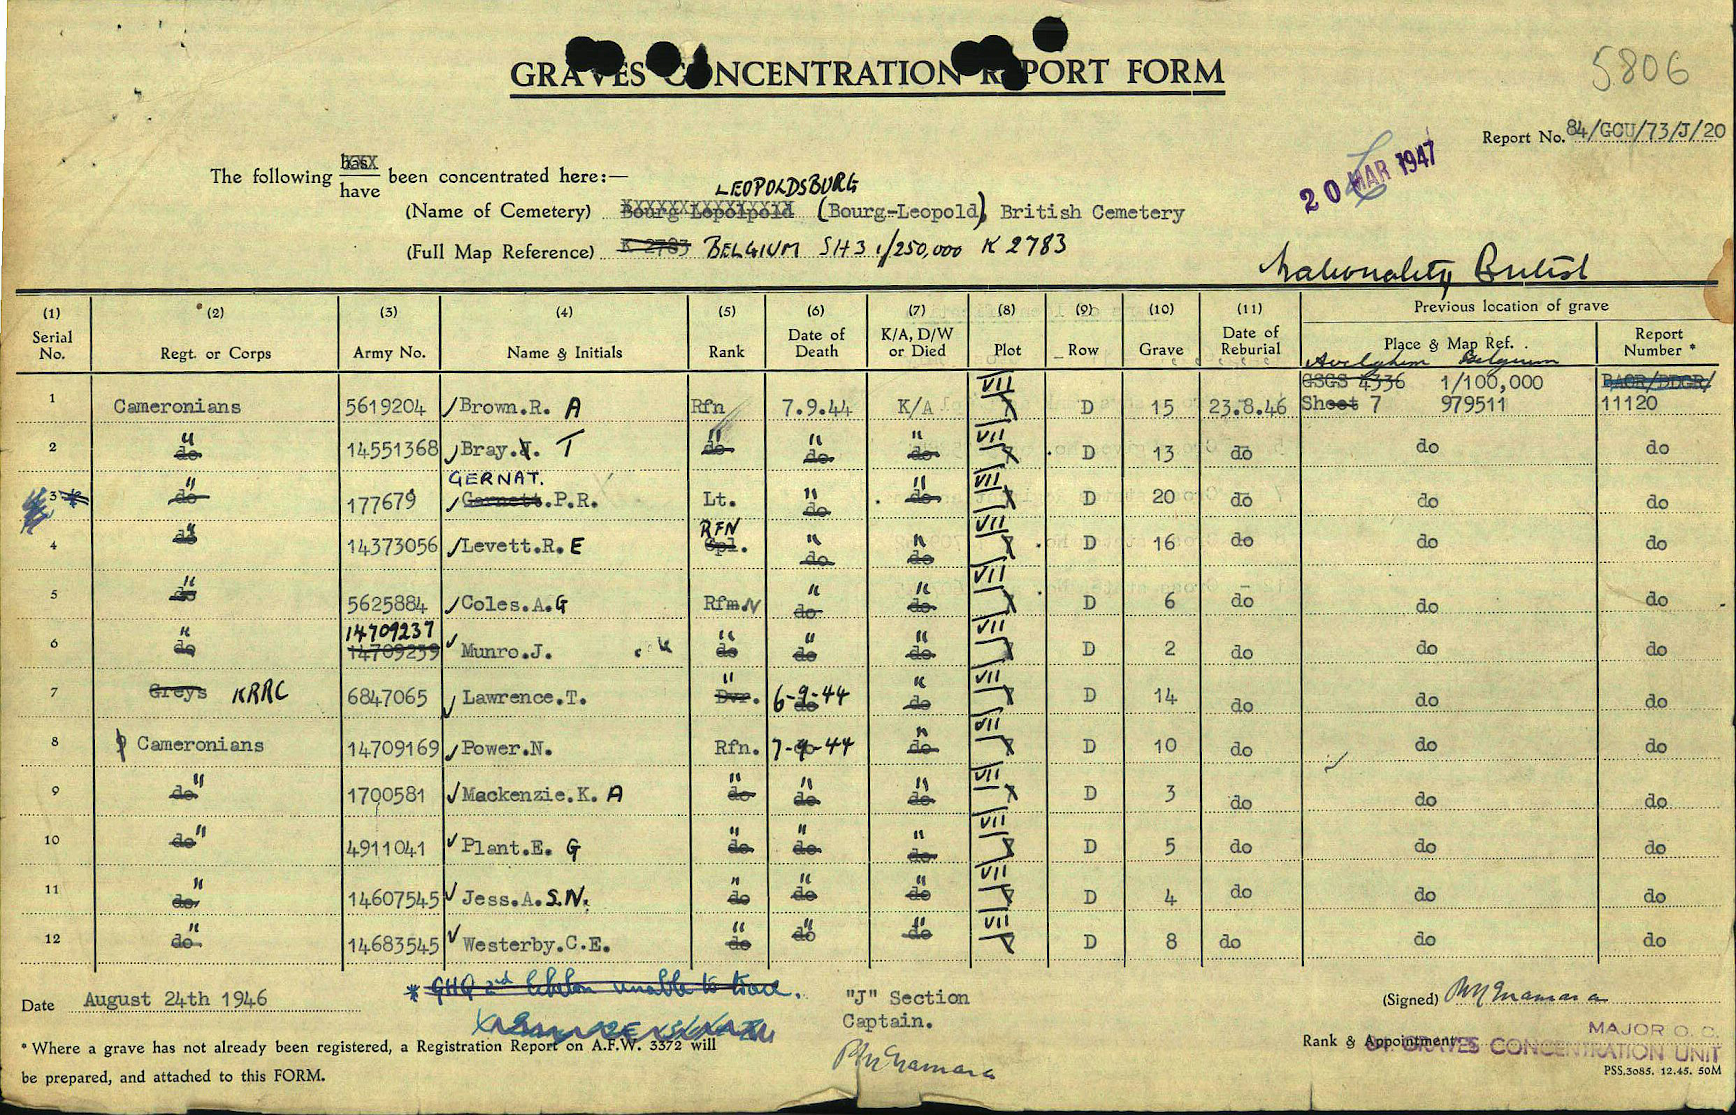 GRAVES CONCENTRATION REPORT FORM
5806
Report No. 84/GCU/73/J/20
20 MAR 1947
The following has/have been concentrated here:—
LEOPOLDSBURG
(Name of Cemetery) Bourg Lepolpold (Bourg-Leopold) British Cemetery
(Full Map Reference) K 2783 BELGIUM SH 3 1/250,000 K 2783
Nationality British
(1) Serial No. (2) Regt. or Corps (3) Army No. (4) Name & Initials (5) Rank (6) Date of Death (7) K/A, D/W or Died (8) Plot (9) Row (10) Grave (11) Date of Reburial Previous location of grave Place & Map Ref. Report Number *
Avelghem Belgium
GSGS 4336 1/100,000 BAOR/DDGR/
1 Cameronians 5619204 Brown.R. A Rfn 7.9.44 K/A VII D 15 23.8.46 Sheet 7 979511 11120
2 do " 14551368 Bray.J. T do " do " do " VII D 13 do do do
GERNAT.
3 * do " 177679 Garnett.P.R. Lt. do " do " VII D 20 do do do
RFN
4 do " 14373056 Levett.R. E Cpl. do " do " VII D 16 do do do
5 do " 5625884 Coles.A.G Rfm N do " do " VII D 6 do do do
14709237
6 do " 14709239 Munro.J. do " do " do " VII D 2 do do do
7 Greys KRRC 6847065 Lawrence.T. Dvr. " do 6-9-44 do " VII D 14 do do do
8 Cameronians 14709169 Power.N. Rfn. do 7-9-44 do " VII D 10 do do do
9 do " 1700581 Mackenzie.K. A do " do " do " VII D 3 do do do
10 do " 4911041 Plant.E. G do " do " do " VII D 5 do do do
11 do " 14607545 Jess.A.S.N. do " do " do " VII D 4 do do do
12 do " 14683545 Westerby.C.E. do " do " do " VII D 8 do do do
* GHQ 2nd Echelon unable to trace.
Date August 24th 1946
"J" Section
Captain.
(Signed)
Rank & Appointment
MAJOR O.C.
GRAVES CONCENTRATION UNIT
* Where a grave has not already been registered, a Registration Report on A.F.W. 3372 will
be prepared, and attached to this FORM.
PSS.3085. 12.45. 50M